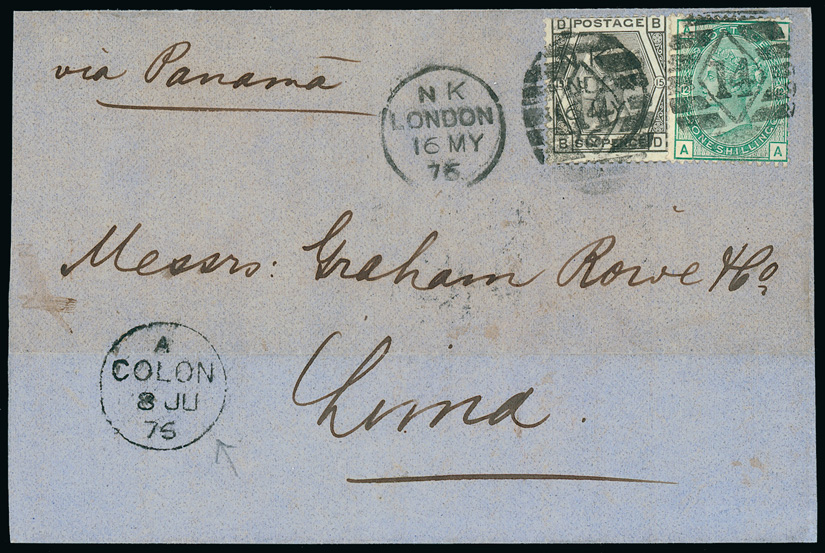 via Panamá
N K
LONDON
16 MY
76
D POSTAGE B
15
B SIX PENCE D
N K
14
ONE SHILLING
A A
Messrs: Graham Rowe & Co
Lima.
A
COLON
8 JU
76